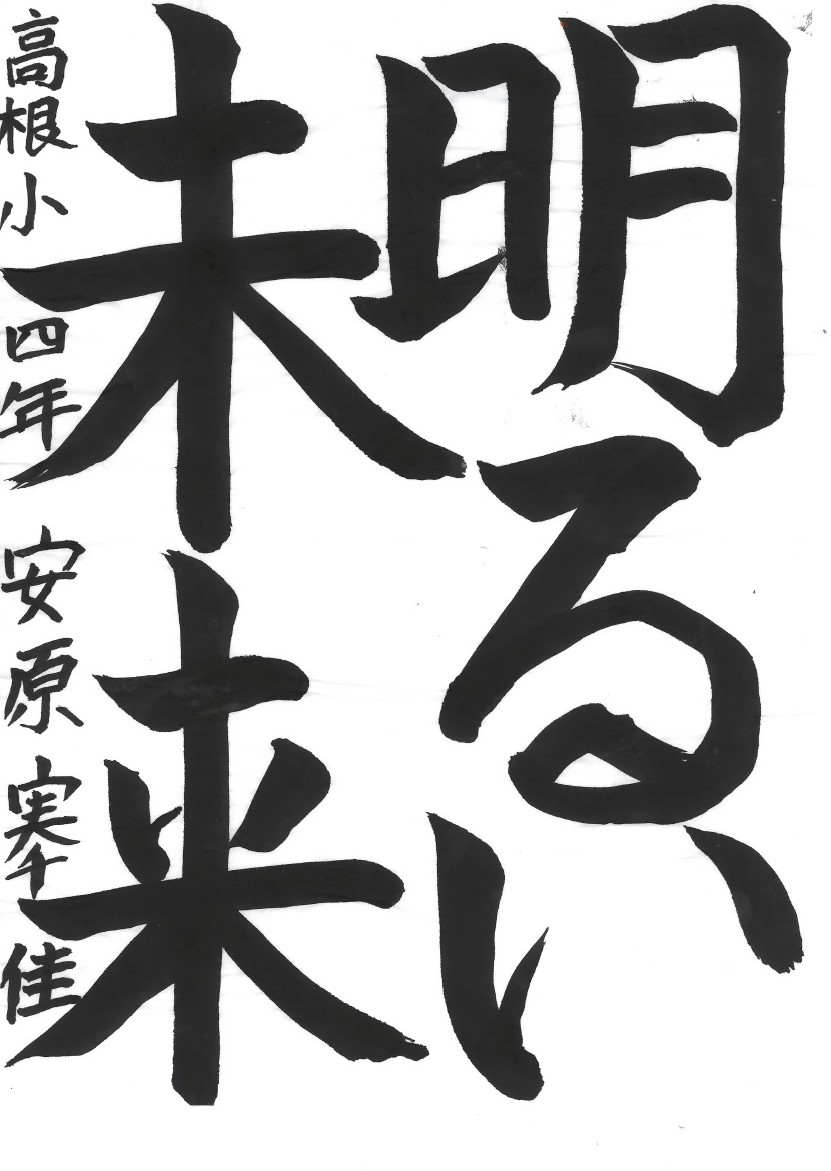 明るい
未来
高根小 四年 安原 佳